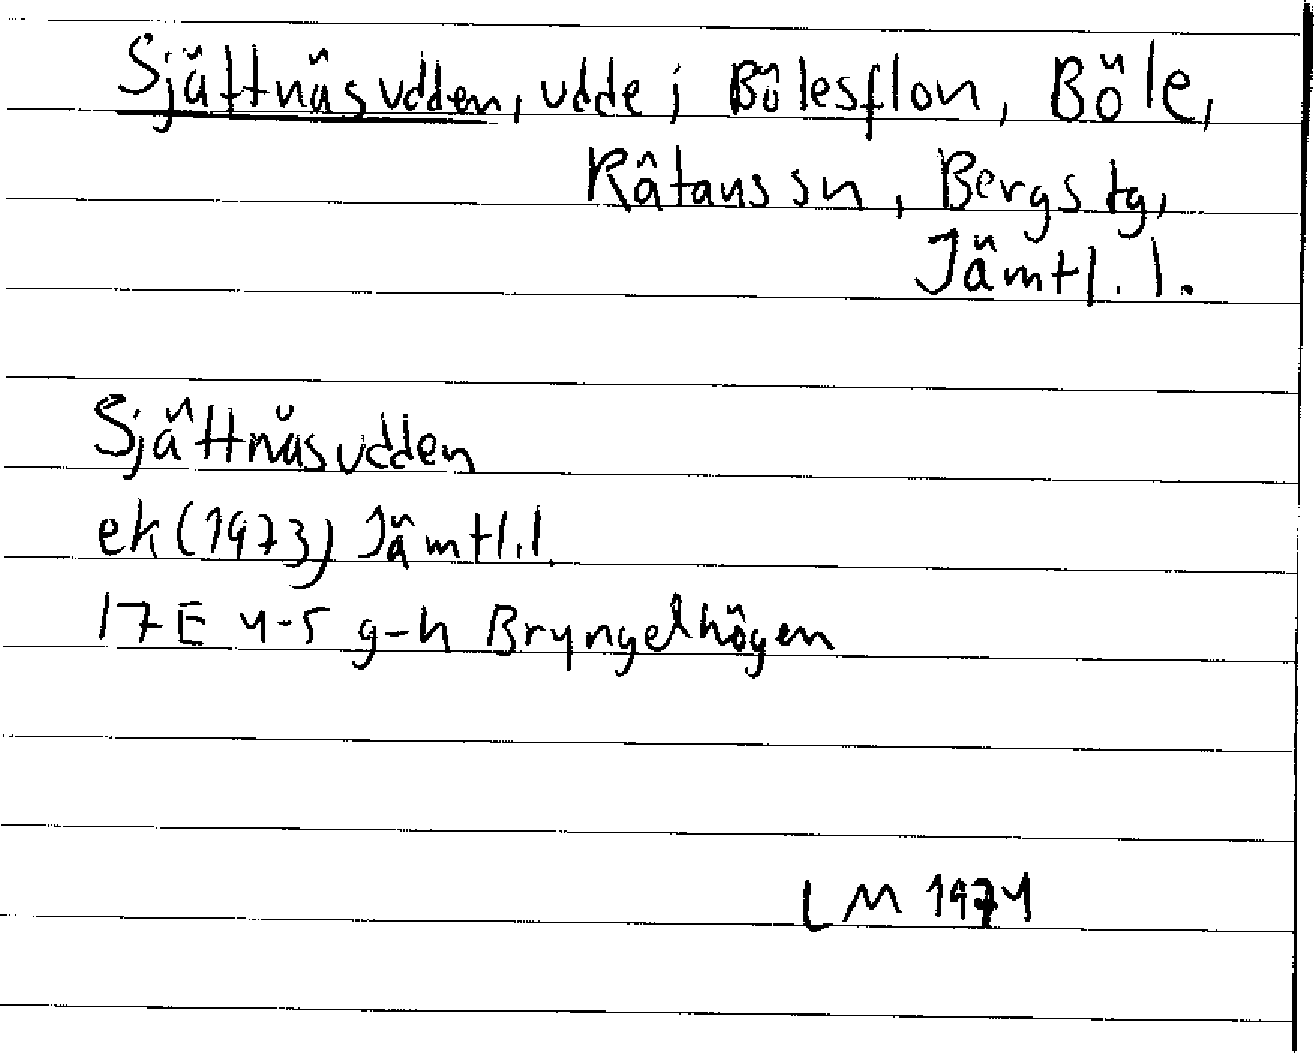 Sjättnäsudden, udde i Bölesflon, Böle,
Råtans sn, Bergs tg,
Jämtl. l.
Sjättnäsudden
ek (1973) Jämtl. l.
17E 4-5 g-h Bryngelhögen
LM 1974